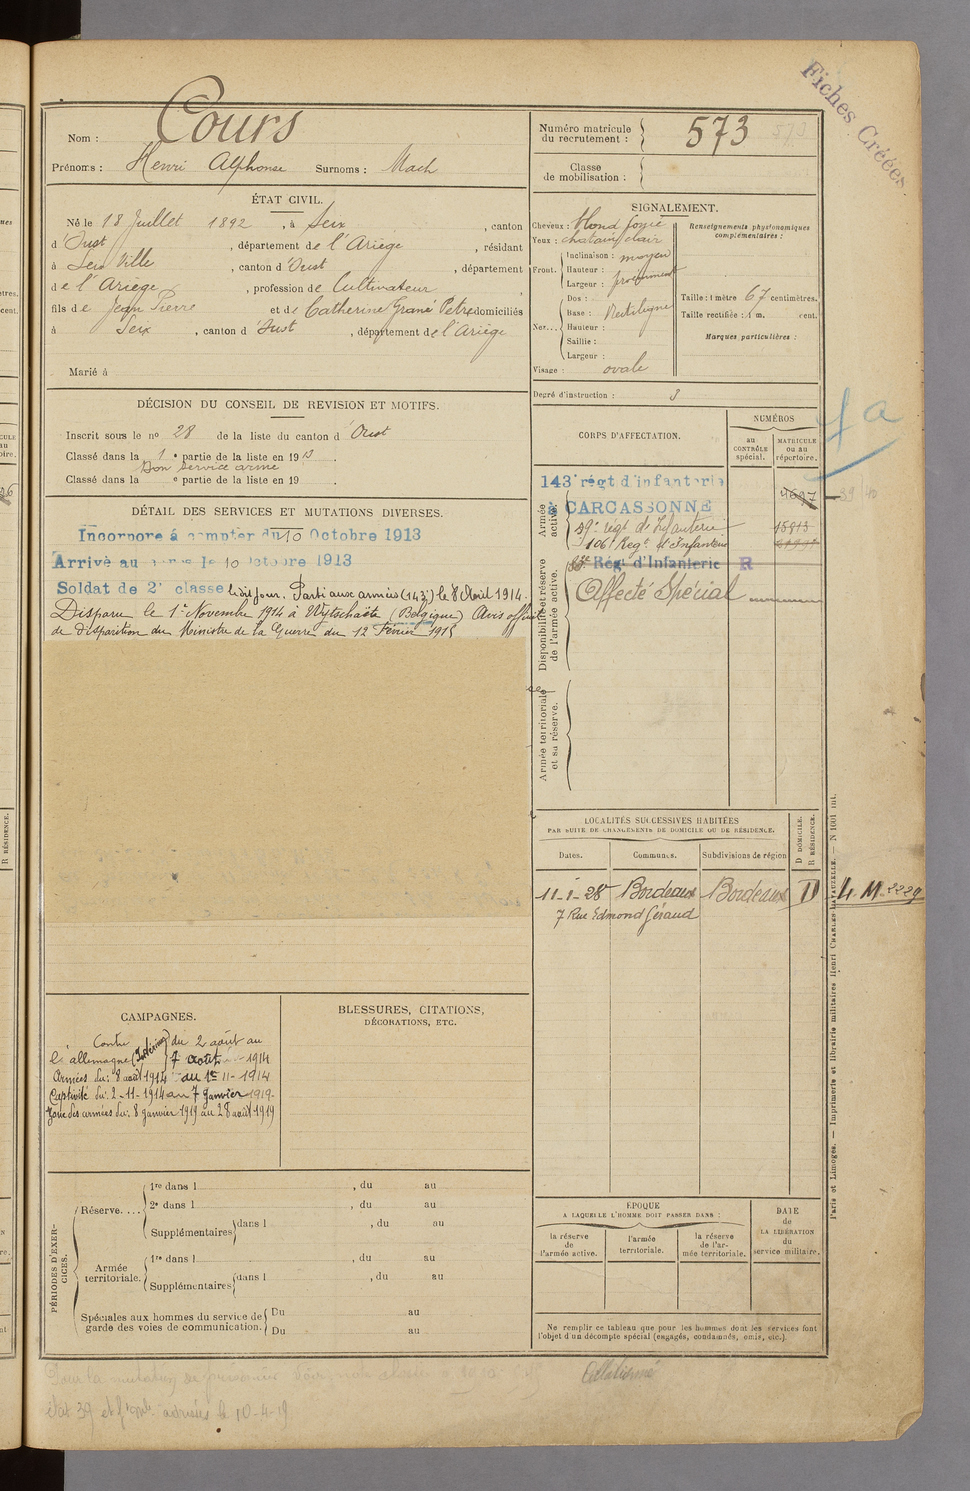 Fiches Créées.
Nom : Cours
Prénoms : Henri Alphonse Surnoms : Mach
Numéro matricule du recrutement : 573
Classe de mobilisation :
ÉTAT CIVIL.
Né le 18 Juillet 1892, à Seix, canton
d'Oust, département de l'Ariège, résidant
à Seix Ville, canton d'Oust, département
de l'Ariège, profession de Cultivateur
fils de Jean Pierre et de Catherine Grané Petre domiciliés
à Seix, canton d'Oust, département de l'Ariège
Marié à
SIGNALEMENT.
Cheveux : blond foncé
Yeux : chatain clair
Front. Inclinaison : moyen
Hauteur : proéminent
Largeur :
Nez... Dos :
Base : Rectiligne
Hauteur :
Saillie :
Largeur :
Visage : ovale
Renseignements physionomiques complémentaires :
Taille : 1 mètre 67 centimètres.
Taille rectifiée : 1 m. cent.
Marques particulières :
Degré d'instruction : 3
DÉCISION DU CONSEIL DE REVISION ET MOTIFS.
Inscrit sous le n° 28 de la liste du canton d'Oust
Classé dans la 1e partie de la liste en 1913.
Bon service armé
Classé dans la e partie de la liste en 19 .
DÉTAIL DES SERVICES ET MUTATIONS DIVERSES.
Incorporé à compter du 10 Octobre 1913
Arrivé au corps le 10 octobre 1913
Soldat de 2e classe ledit jour. Parti aux armées (143e) le 8 Août 1914.
Disparu le 1er Novembre 1914 à Wytschaëte (Belgique) Avis officiel
de disparition du Ministre de la Guerre du 12 Février 1915
CORPS D'AFFECTATION.
NUMÉROS
au CONTRÔLE spécial.
MATRICULE ou au répertoire.
Armée active.
143e régt d'infanterie
à CARCASSONNE
4697
59e régt de Infanterie 15813
106e Regt d'Infanterie
Disponibilité et réserve de l'armée active.
Régt d'Infanterie R
Affecté Spécial
Armée territoriale et sa réserve.
LOCALITÉS SUCCESSIVES HABITÉES
PAR SUITE DE CHANGEMENTS DE DOMICILE OU DE RÉSIDENCE.
Dates. Communes. Subdivisions de région
D DOMICILE. R RÉSIDENCE.
11-1-28 Bordeaux Bordeaux D 4 M 2229
7 Rue Edmond Géraud
CAMPAGNES.
Contre
l'allemagne (Intérieur) du 2 août au
7 août 1914
Armées du : 8 août 1914 au 1er-11-1914
Captivité du : 2-11-1914 au 7 janvier 1919.
Zone des armées du : 8 janvier 1919 au 28 août 1919
BLESSURES, CITATIONS,
DÉCORATIONS, ETC.
PÉRIODES D'EXERCICES.
Réserve.... 1re dans l , du au
2e dans l , du au
Supplémentaires dans l , du au
Armée territoriale. 1re dans l , du au
Supplémentaires dans l , du au
Spéciales aux hommes du service de garde des voies de communication. Du au
Du au
ÉPOQUE
A LAQUELLE L'HOMME DOIT PASSER DANS :
la réserve de l'armée active.
l'armée territoriale.
la réserve de l'armée territoriale.
DATE de LA LIBÉRATION du service militaire.
Ne remplir ce tableau que pour les hommes dont les services font
l'objet d'un décompte spécial (engagés, condamnés, omis, etc.).
Paris et Limoges. — Imprimerie et librairie militaires Henri CHARLES-LAVAUZELLE. — N 1001 int.
Collationné